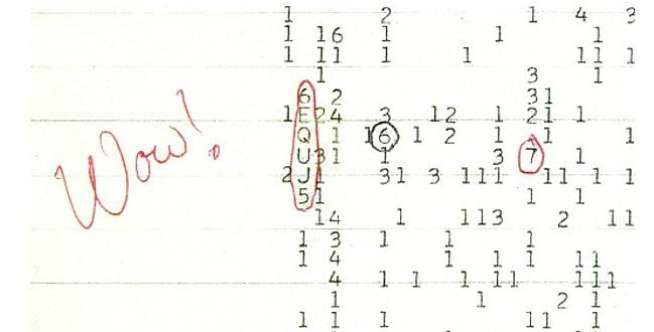 1 2 1 4 3
1 16 1 1 1
1 11 1 1 11 1
1 3 1
6 2 31
1 E24 3 12 1 21 1
Q 1 16 1 2 1 1 1
U31 1 3 7 1
2 J1 31 3 111 11 1 1
51 1 1
14 1 113 2 11
1 3 1 1 1
1 4 1 1 1 11
4 1 1 1 11 111
1 1 2 1
1 1 1 1 11 1
Wow!